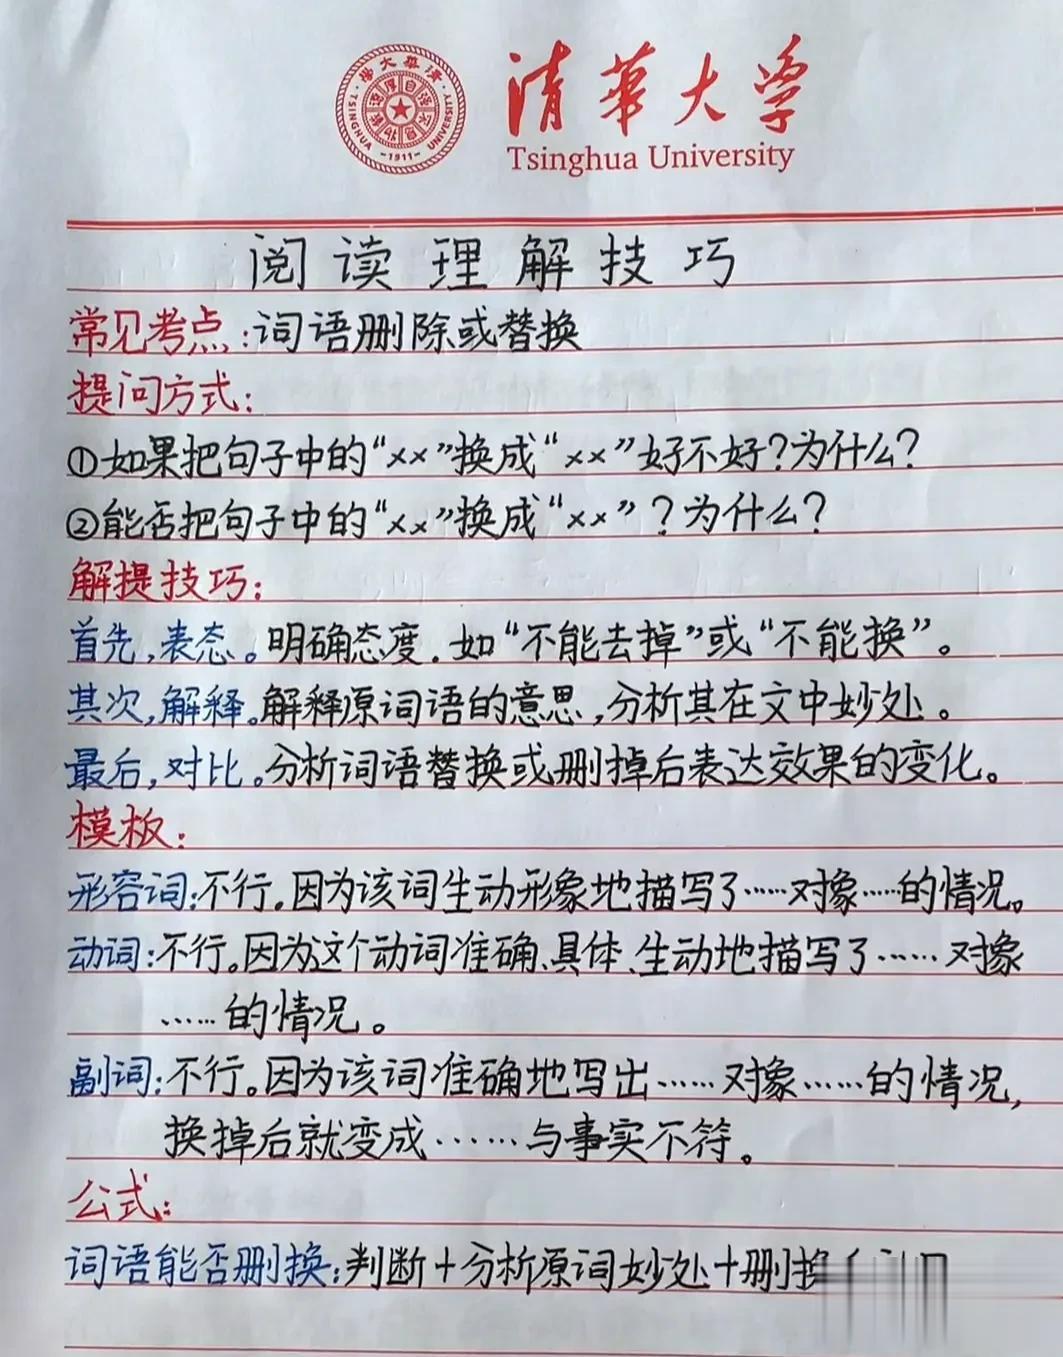 清華大学
Tsinghua University
清華大学
TSINGHUA UNIVERSITY
-1911-
阅读理解技巧
常见考点:词语删除或替换
提问方式:
①如果把句子中的“××”换成“××”好不好?为什么?
②能否把句子中的“××”换成“××”?为什么?
解提技巧:
首先,表态。明确态度.如“不能去掉”或“不能换”。
其次,解释。解释原词语的意思,分析其在文中妙处。
最后,对比。分析词语替换或删掉后表达效果的变化。
模板:
形容词:不行.因为该词生动形象地描写了……对象……的情况。
动词:不行。因为这个动词准确、具体、生动地描写了……对象
……的情况。
副词:不行。因为该词准确地写出……对象……的情况,
换掉后就变成……与事实不符。
公式:
词语能否删换:判断+分析原词妙处+删换